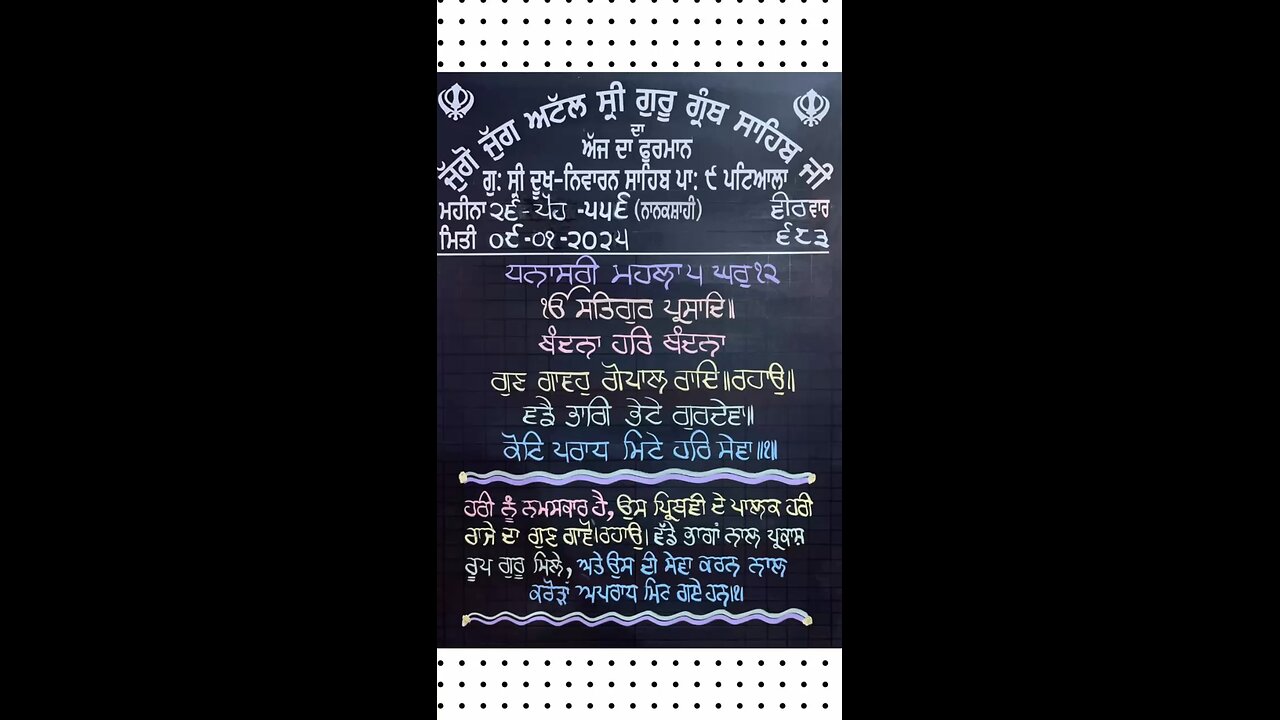 ਜੁੱਗੋ ਜੁੱਗ ਅਟੱਲ ਸ੍ਰੀ ਗੁਰੂ ਗ੍ਰੰਥ ਸਾਹਿਬ ਜੀ
ਦਾ
ਅੱਜ ਦਾ ਫੁਰਮਾਨ
ਗੁ: ਸ੍ਰੀ ਦੂਖ-ਨਿਵਾਰਨ ਸਾਹਿਬ ਪਾ: ੯ ਪਟਿਆਲਾ
ਮਹੀਨਾ ੨੬-ਪੋਹ -੫੫੬ (ਨਾਨਕਸ਼ਾਹੀ) ਵੀਰਵਾਰ
ਮਿਤੀ ੦੯-੦੧-੨੦੨੫ ੬੮੩
ਧਨਾਸਰੀ ਮਹਲਾ ੫ ਘਰੁ ੧੨
ੴ ਸਤਿਗੁਰ ਪ੍ਰਸਾਦਿ॥
ਬੰਦਨਾ ਹਰਿ ਬੰਦਨਾ
ਗੁਣ ਗਾਵਹੁ ਗੋਪਾਲ ਰਾਇ॥ਰਹਾਉ॥
ਵਡੈ ਭਾਗਿ ਭੇਟੇ ਗੁਰਦੇਵਾ॥
ਕੋਟਿ ਪਰਾਧ ਮਿਟੇ ਹਰਿ ਸੇਵਾ॥੧॥
ਹਰੀ ਨੂੰ ਨਮਸਕਾਰ ਹੈ, ਉਸ ਪ੍ਰਿਥਵੀ ਦੇ ਪਾਲਕ ਹਰੀ
ਰਾਜੇ ਦਾ ਗੁਣ ਗਾਵੋ।ਰਹਾਉ। ਵੱਡੇ ਭਾਗਾਂ ਨਾਲ ਪ੍ਰਕਾਸ਼
ਰੂਪ ਗੁਰੂ ਮਿਲੇ, ਅਤੇ ਉਸ ਦੀ ਸੇਵਾ ਕਰਨ ਨਾਲ
ਕਰੋੜਾਂ ਅਪਰਾਧ ਮਿਟ ਗਏ ਹਨ।੧।